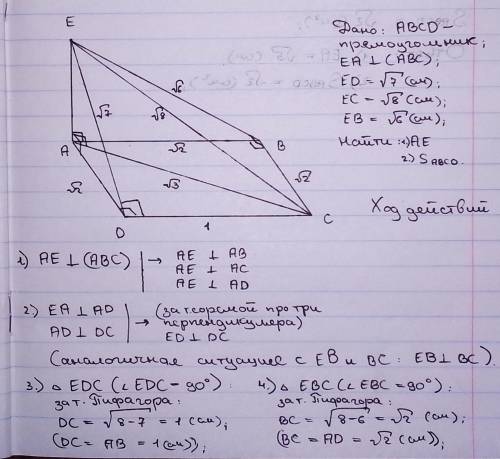 E
Дано: ABCD –
прямоугольник;
EA ⊥ (ABC);
ED = √7 (см);
EC = √8 (см);
EB = √6 (см);
Найти: 1) AE
2) S ABCD.
√6
√7
√8
A
B
√2
√2
√3
√2
D
1
C
Ход действий
1) AE ⊥ (ABC) → AE ⊥ AB
AE ⊥ AC
AE ⊥ AD
2) EA ⊥ AD
AD ⊥ DC → (за теоремой про три
перпендикуляра)
ED ⊥ DC
(аналогичная ситуация с EB и BC: EB ⊥ BC).
3.) △ EDC (∠EDC = 90°):
за т. Пифагора:
DC = √8-7 = 1 (см);
(DC = AB = 1 (см));
4.) △ EBC (∠EBC = 90°):
за т. Пифагора:
BC = √8-6 = √2 (см);
(BC = AD = √2 (см));